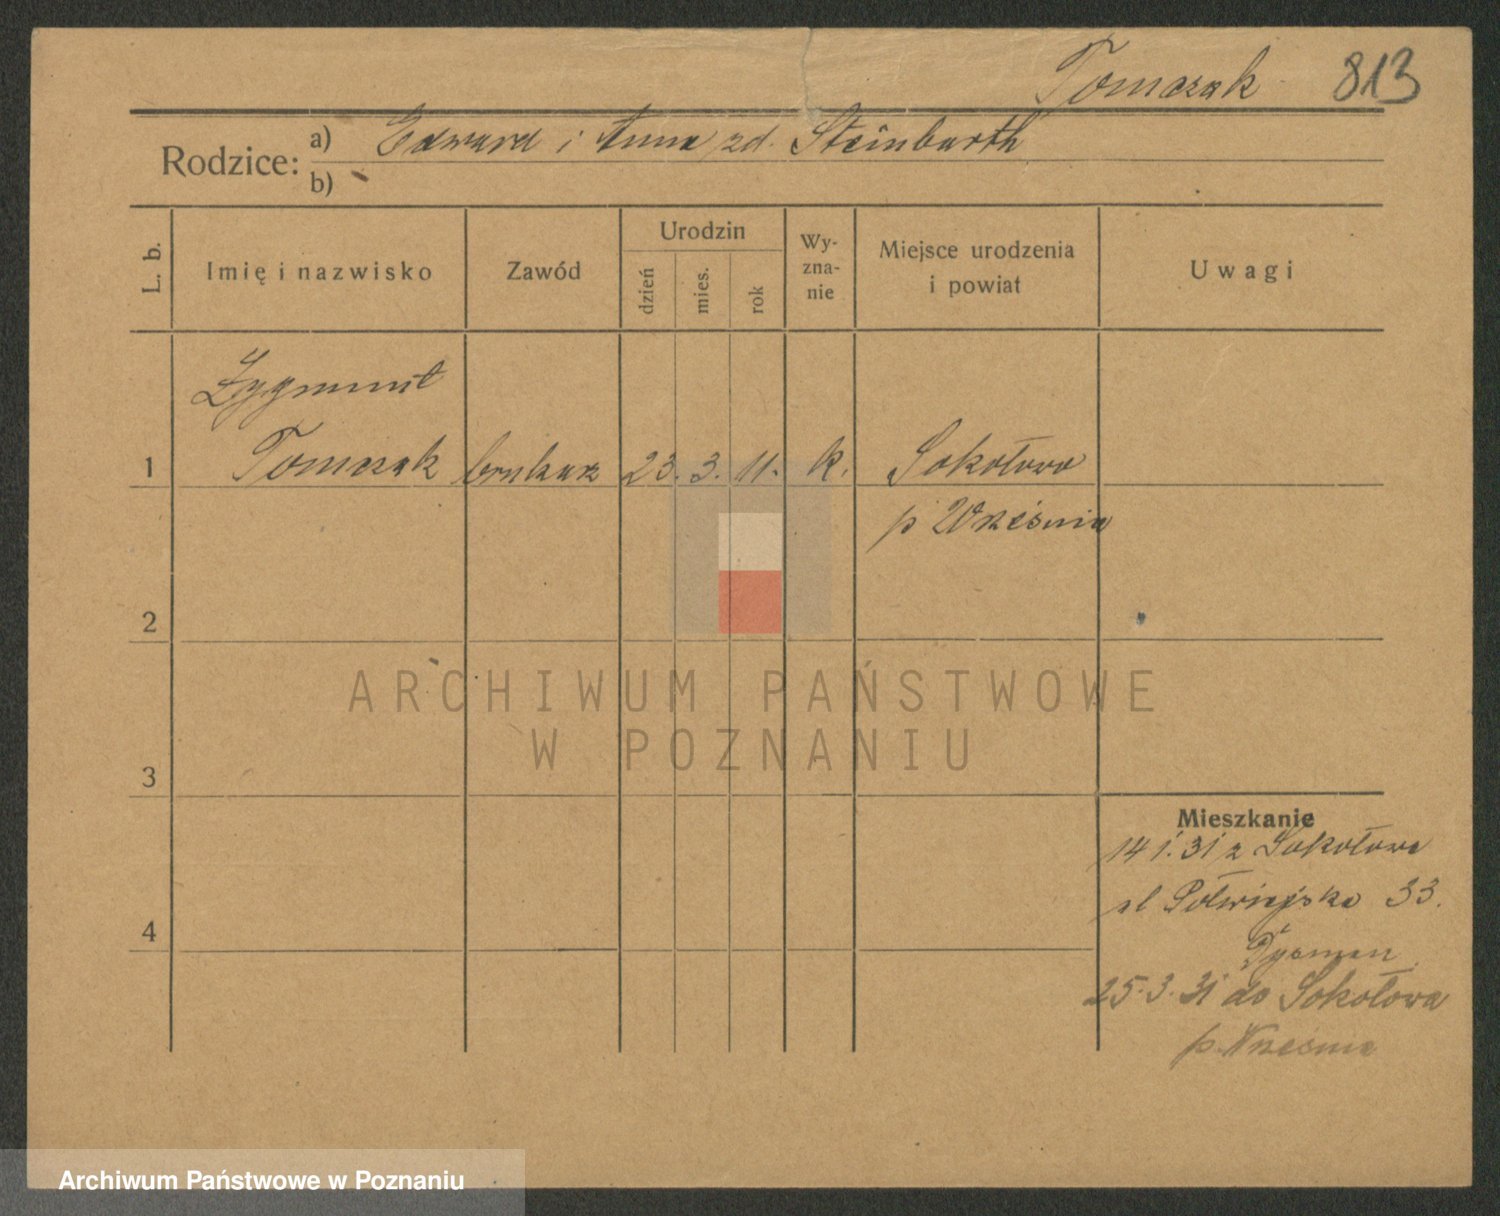 Tomczak 813
Rodzice: a) Edward i Anna zd. Steinbarth
b)
L. b. Imię i nazwisko Zawód Urodzin dzień mies. rok Wy-zna-nie Miejsce urodzenia i powiat Uwagi
Zygmunt
1 Tomczak brukarz 23. 3. 11. k. Sokołowo
p Września
2
ARCHIWUM PAŃSTWOWE
W POZNANIU
3
Mieszkanie
14 1. 31 z Sokołowa
ul Półwiejska 33.
4
25. 3. 31 do Sokołowa
p. Września
Archiwum Państwowe w Poznaniu